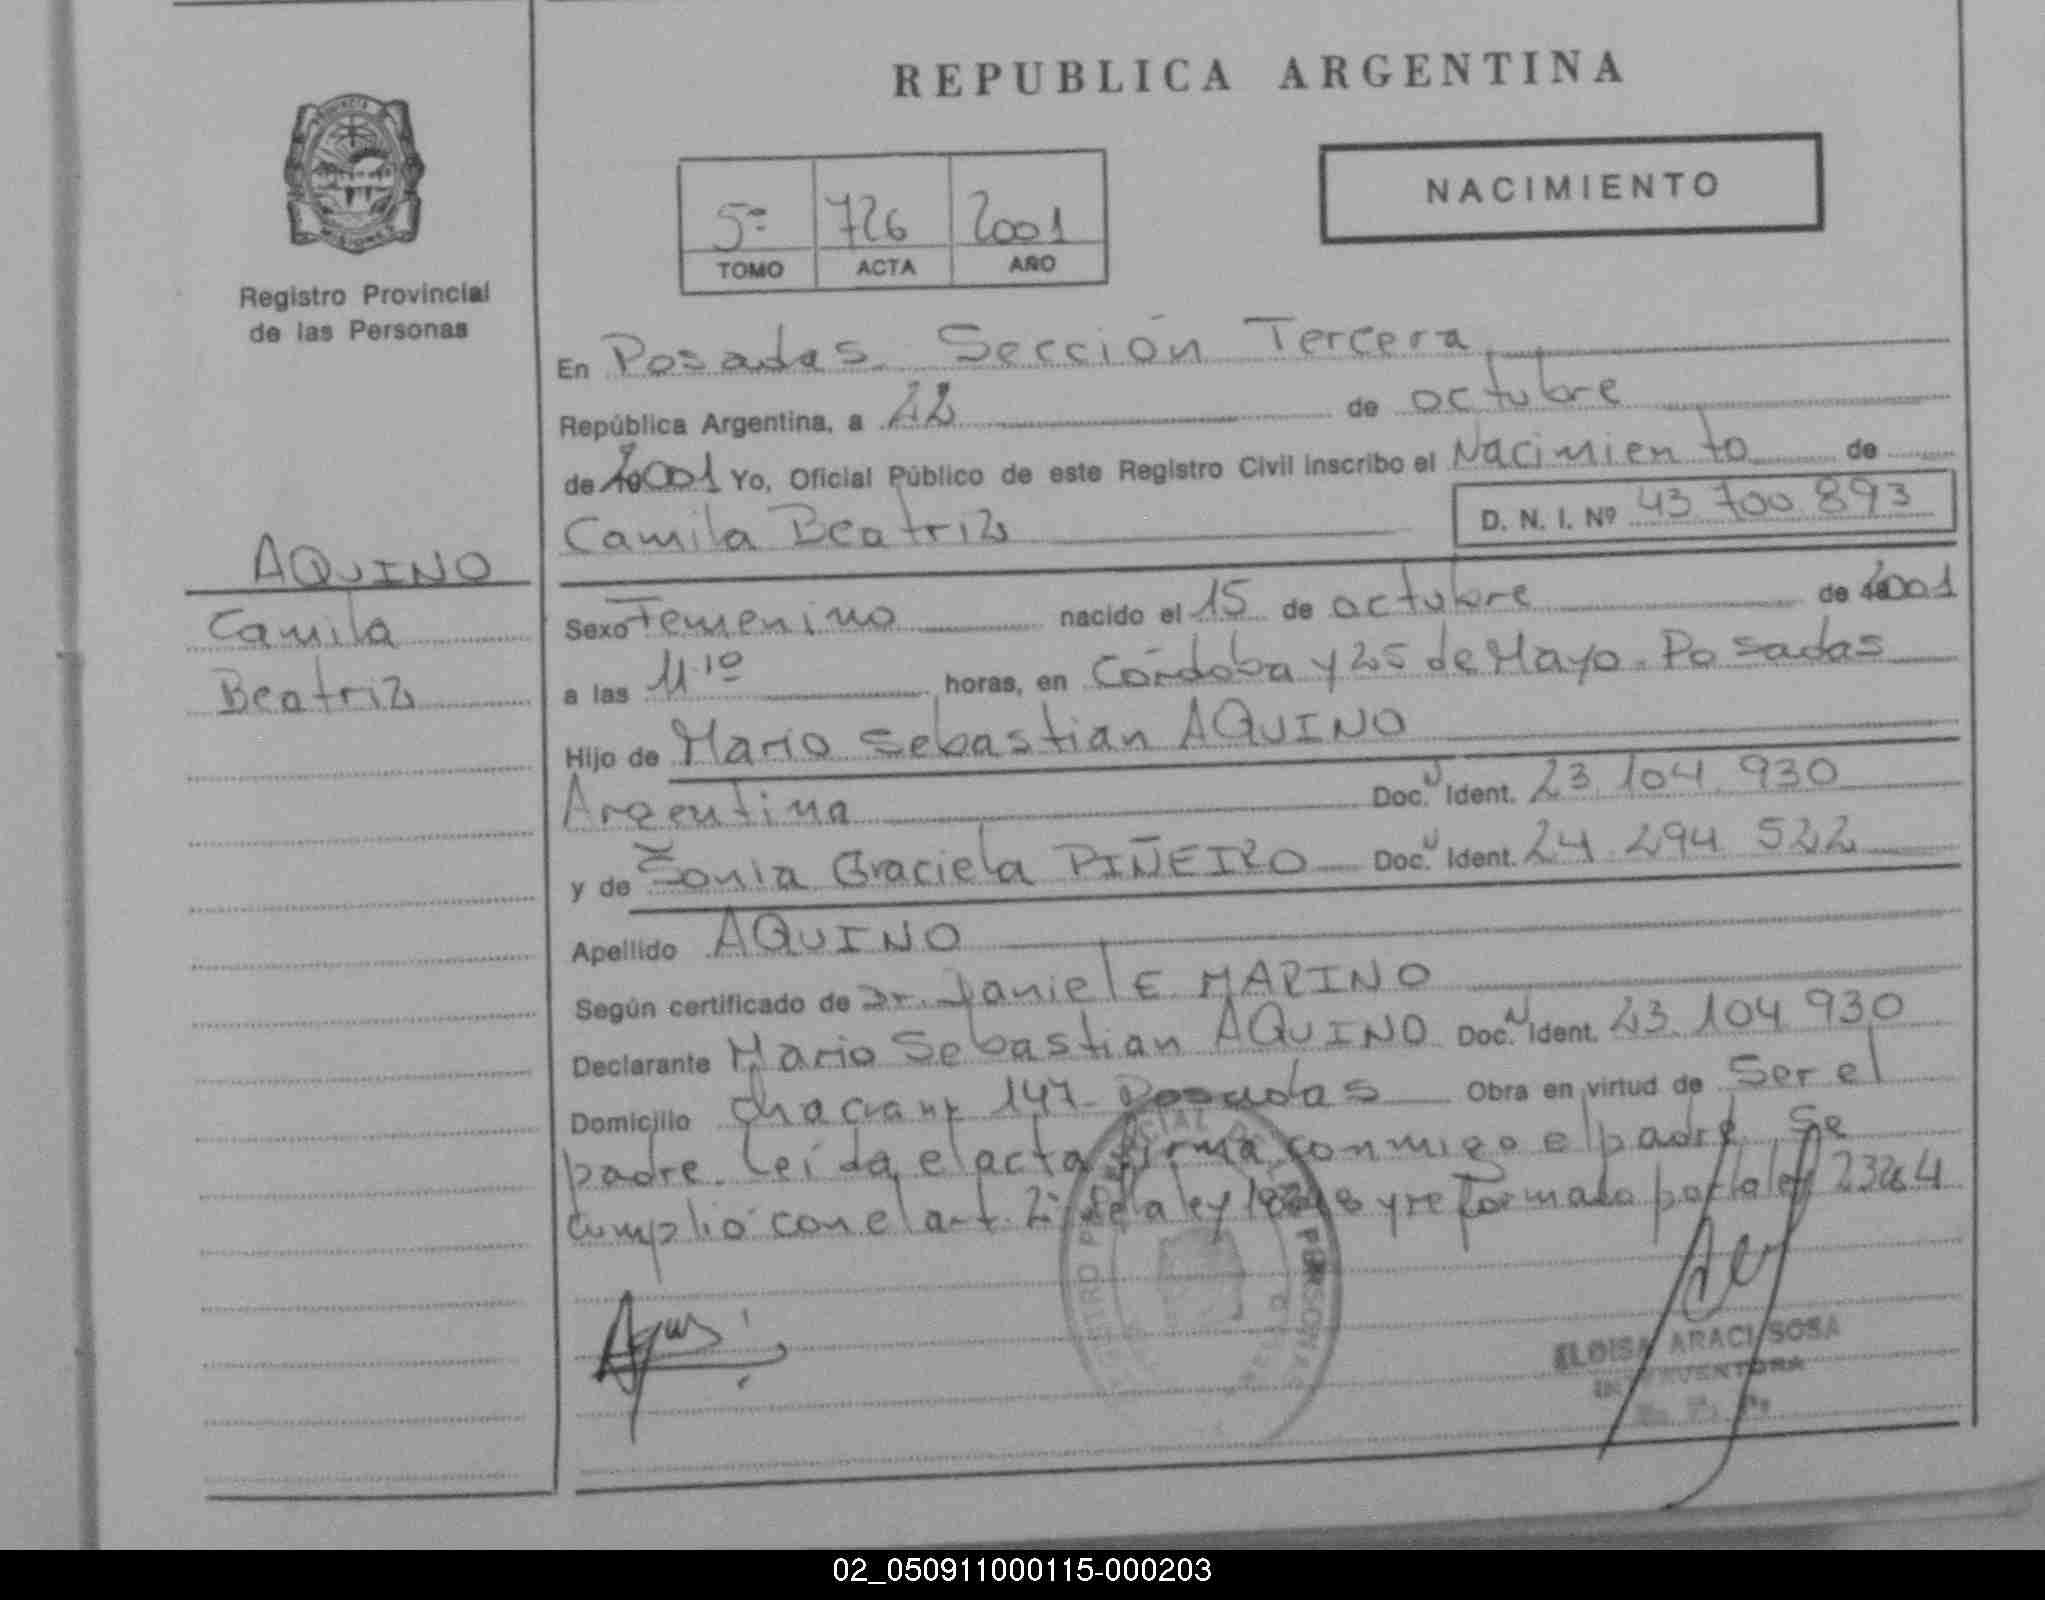 REPUBLICA ARGENTINA
PROVINCIA
MISIONES
Registro Provincial
de las Personas
NACIMIENTO
5º 726 2001
TOMO ACTA AÑO
En Posadas Sección Tercera
República Argentina, a 22 de octubre
de 2001 Yo, Oficial Público de este Registro Civil inscribo el Nacimiento de
Camila Beatriz D. N. I. Nº 43.700.893
AQUINO
Camila
Beatriz
Sexo Femenino nacido el 15 de octubre de 2001
a las 11.10 horas, en Córdoba y 25 de Mayo. Posadas
Hijo de Mario Sebastian AQUINO
Argentina Doc. Ident. 23.104.930
y de Sonia Graciela PIÑEIRO Doc. Ident. 24.294.522
Apellido AQUINO
Según certificado de Dr. Daniel E MARINO
Declarante Mario Sebastian AQUINO Doc. Ident. 23.104.930
Domicilio 147 Posadas Obra en virtud de Ser el
padre. Leída el acta firma conmigo el padre. Se
cumplió con el art. 2º de la ley y reformada por la ley 23264
ELOISA ARACI SOSA
INTERVENTORA
02_050911000115-000203